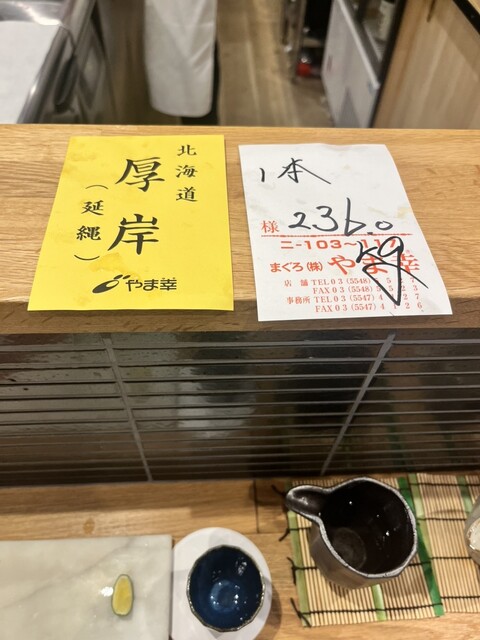 北海道
厚岸
(延縄)
やま幸
1本
様 236.0
ニ-103~11
kg
まぐろ(株) やま幸
店舗 TEL 03 (5548)
FAX 03 (5548)
事務所 TEL 03 (5547) 4127
FAX 03 (5547) 4126